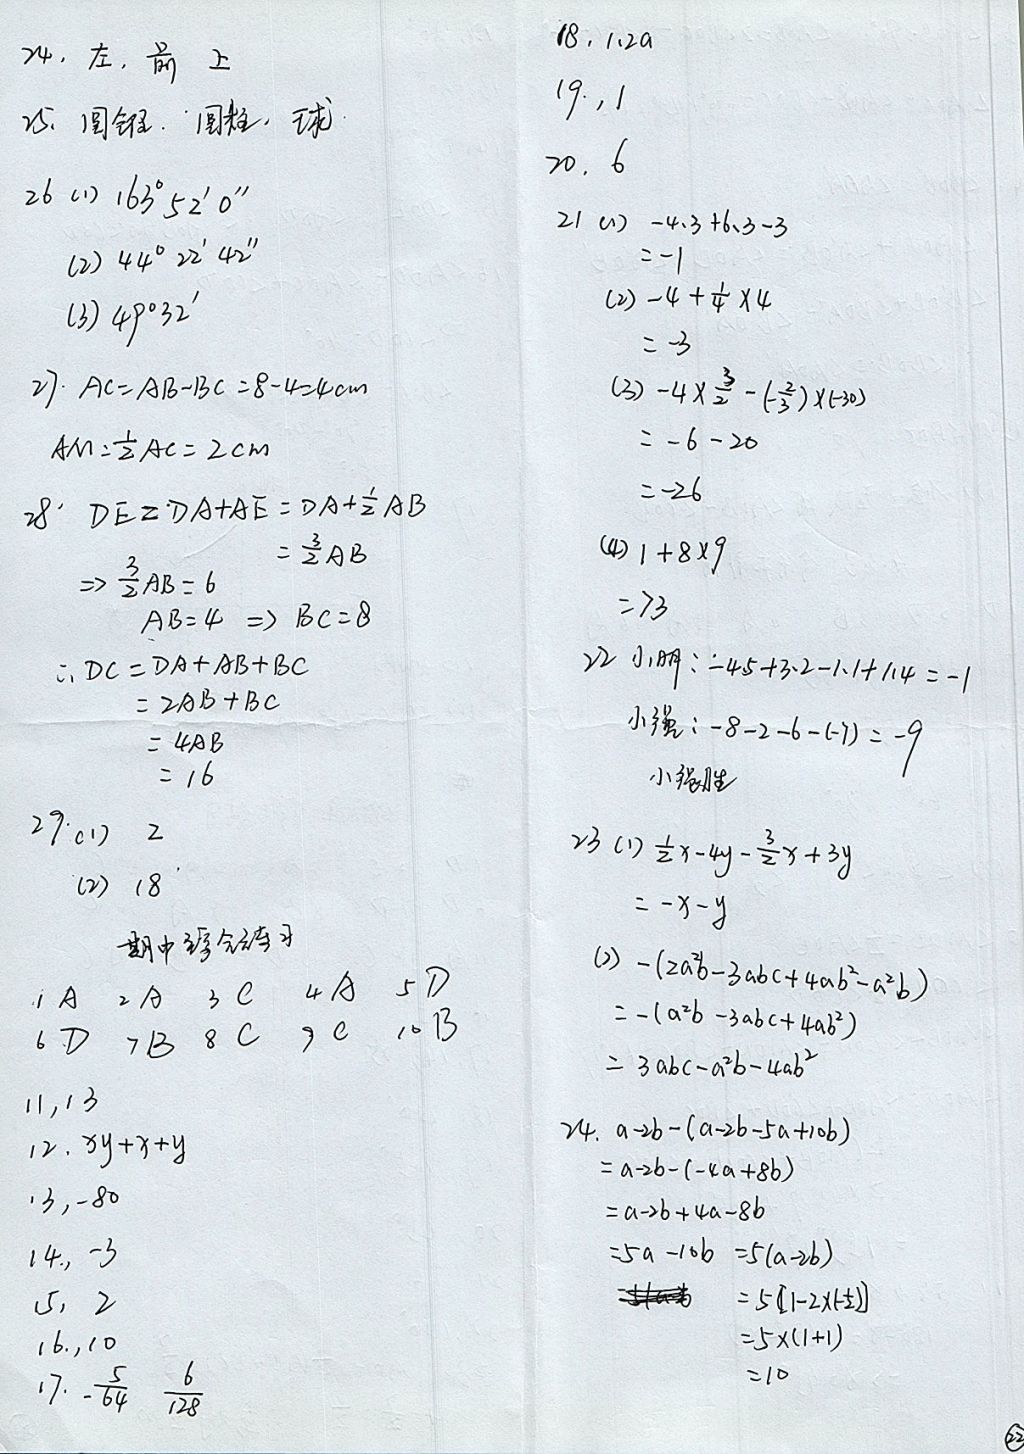 24. 左. 前 上
25. 圆锥. 圆柱. 球.
26 (1) 163°52′0″
(2) 44°22′42″
(3) 49°32′
27. AC=AB-BC=8-4=4cm
AM=½AC=2cm
28. DE=DA+AE=DA+½AB
=3/2AB
=>3/2AB=6
AB=4 => BC=8
∴DC=DA+AB+BC
=2AB+BC
=4AB
=16
29.(1) 2
(2) 18
期中综合练习
1 A 2 A 3 C 4 A 5 D
6 D 7 B 8 C 9 C 10 B
11, 13
12. xy+x+y
13, -80
14., -3
15, 2
16., 10
17. -5/64 6/128
18. 1.2a
19., 1
20. 6
21 (1) -4.3+6.3-3
=-1
(2) -4+¼×4
=-3
(3) -4×3/2-(-2/3)×(-30)
=-6-20
=-26
(4) 1+8×9
=73
22 小明:-4.5+3.2-1.1+1.4=-1
小强:-8-2-6-(-7)=-9
小强胜
23 (1) ½x-4y-3/2x+3y
=-x-y
(2) -(2a²b-3abc+4ab²-a²b)
=-(a²b-3abc+4ab²)
=3abc-a²b-4ab²
24. a-2b-(a-2b-5a+10b)
=a-2b-(-4a+8b)
=a-2b+4a-8b
=5a-10b =5(a-2b)
=5[1-2×(-½)]
=5×(1+1)
=10
22